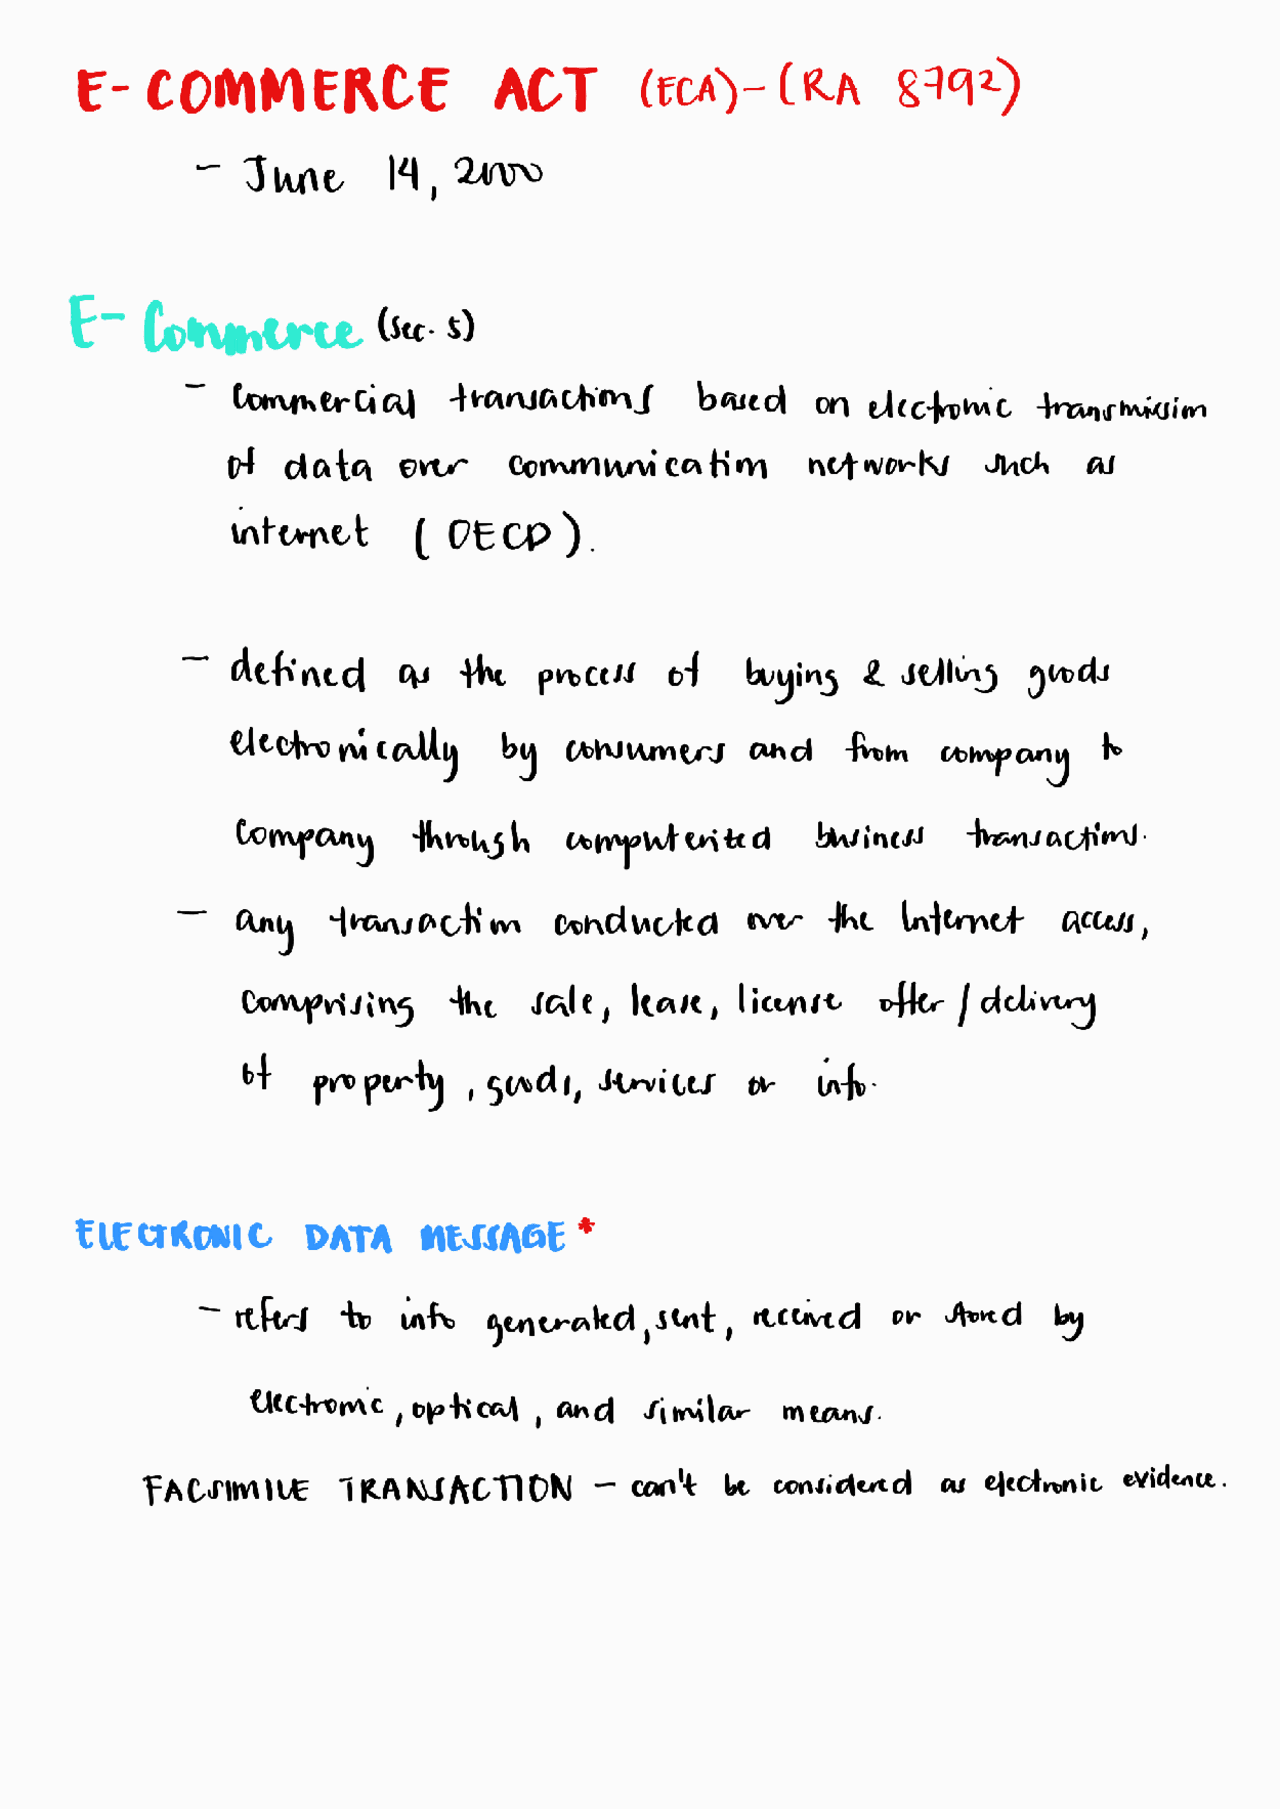 E-COMMERCE ACT (ECA)-(RA 8792)
- June 14, 2000
E-Commerce (Sec. 5)
- Commercial transactions based on electronic transmission
of data over communication networks such as
internet (OECD).
- defined as the process of buying & selling goods
electronically by consumers and from company to
company through computerized business transactions.
- any transaction conducted over the Internet access,
comprising the sale, lease, license offer/delivery
of property, goods, services or info.
ELECTRONIC DATA MESSAGE*
- refers to info generated, sent, received or stored by
electronic, optical, and similar means.
FACSIMILE TRANSACTION - can't be considered as electronic evidence.